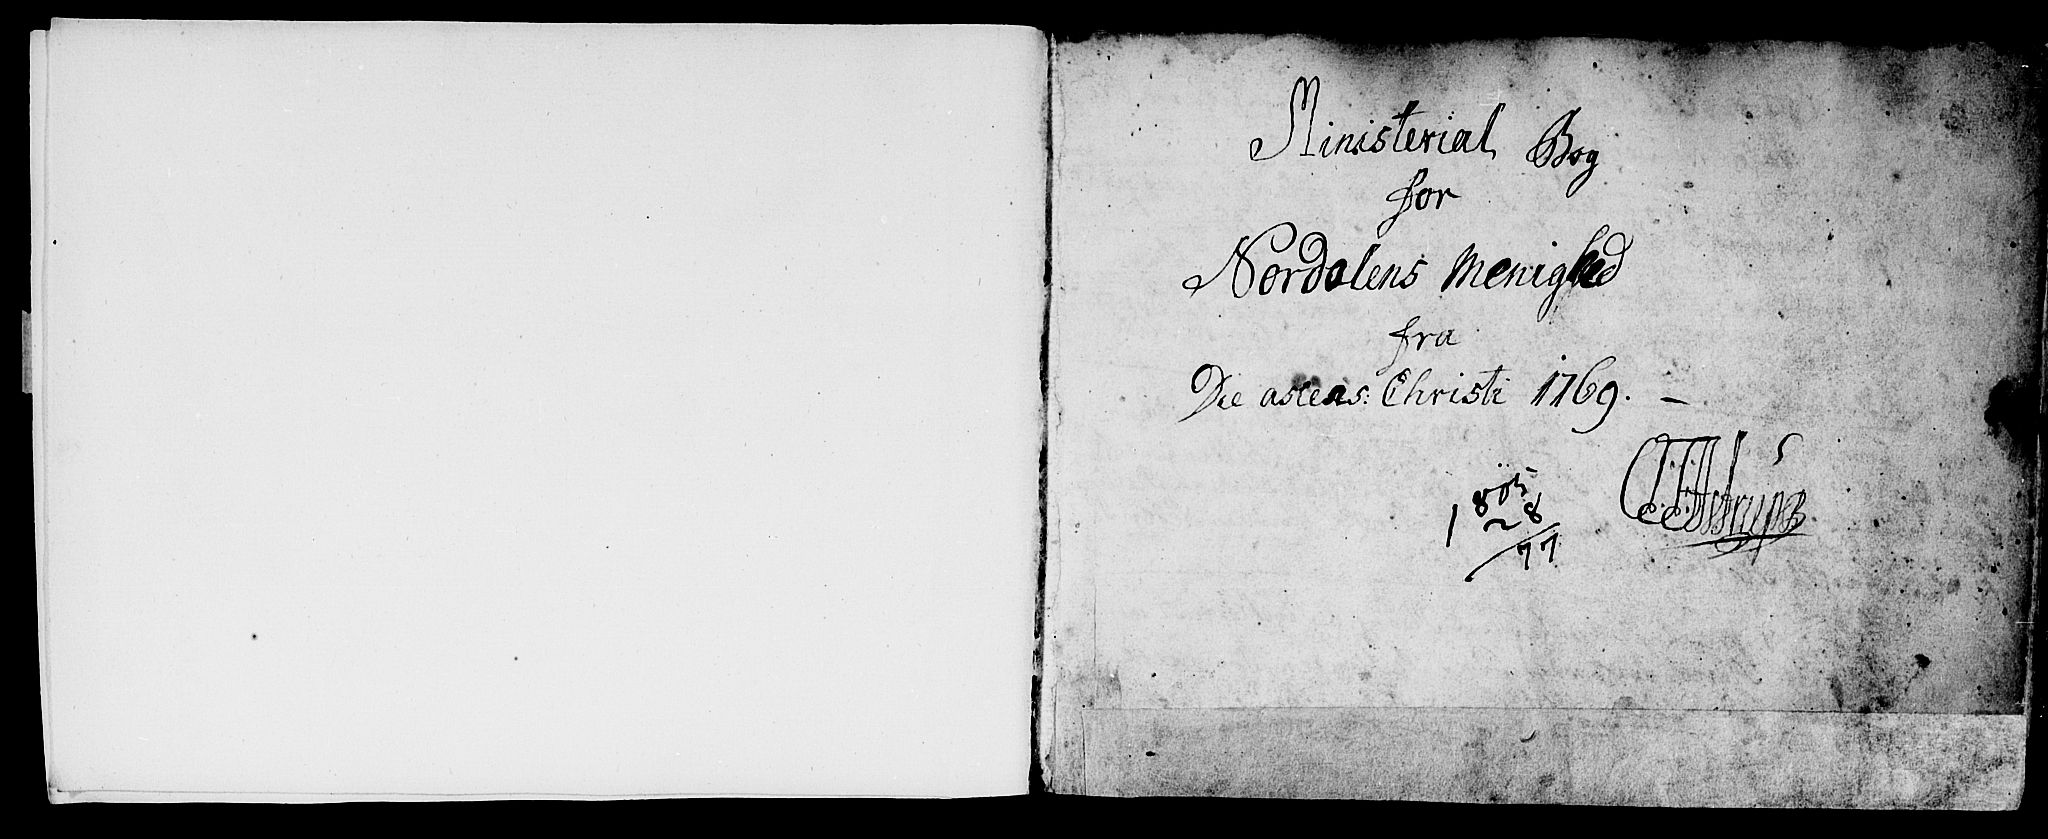 Ministerial Bog
for
Nordalens Menighed
fra
Die ascens: Christi 1769. –
1805
28
77